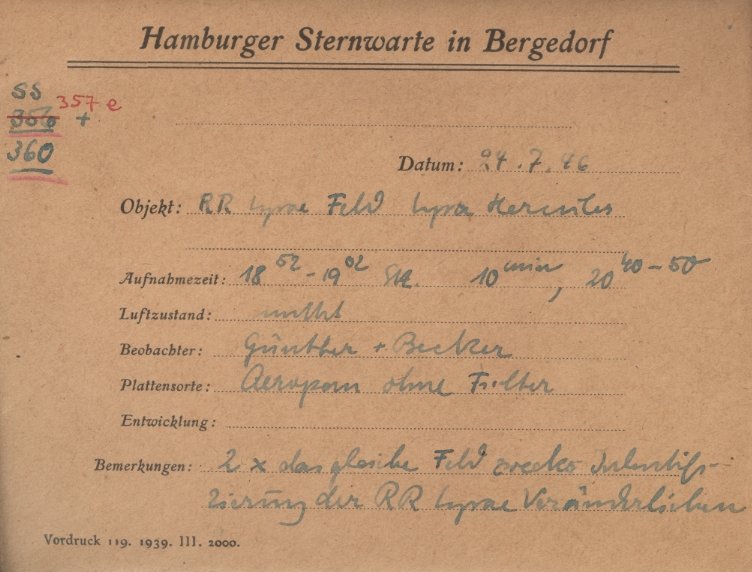 Hamburger Sternwarte in Bergedorf
SS
356 357 e
+
360
Datum: 24.7.46
Objekt: RR Lyrae Feld Lyra Hercules
Aufnahmezeit: 18 52 - 19 02 10 min, 20 40-50
Luftzustand:
Beobachter: Günther + Becker
Plattensorte: Aeropan ohne Filter
Entwicklung:
Bemerkungen: 2 x das gleiche Feld zwecks Identifi-
zierung der RR Lyrae Veränderlichen
Vordruck 119. 1939. III. 2000.